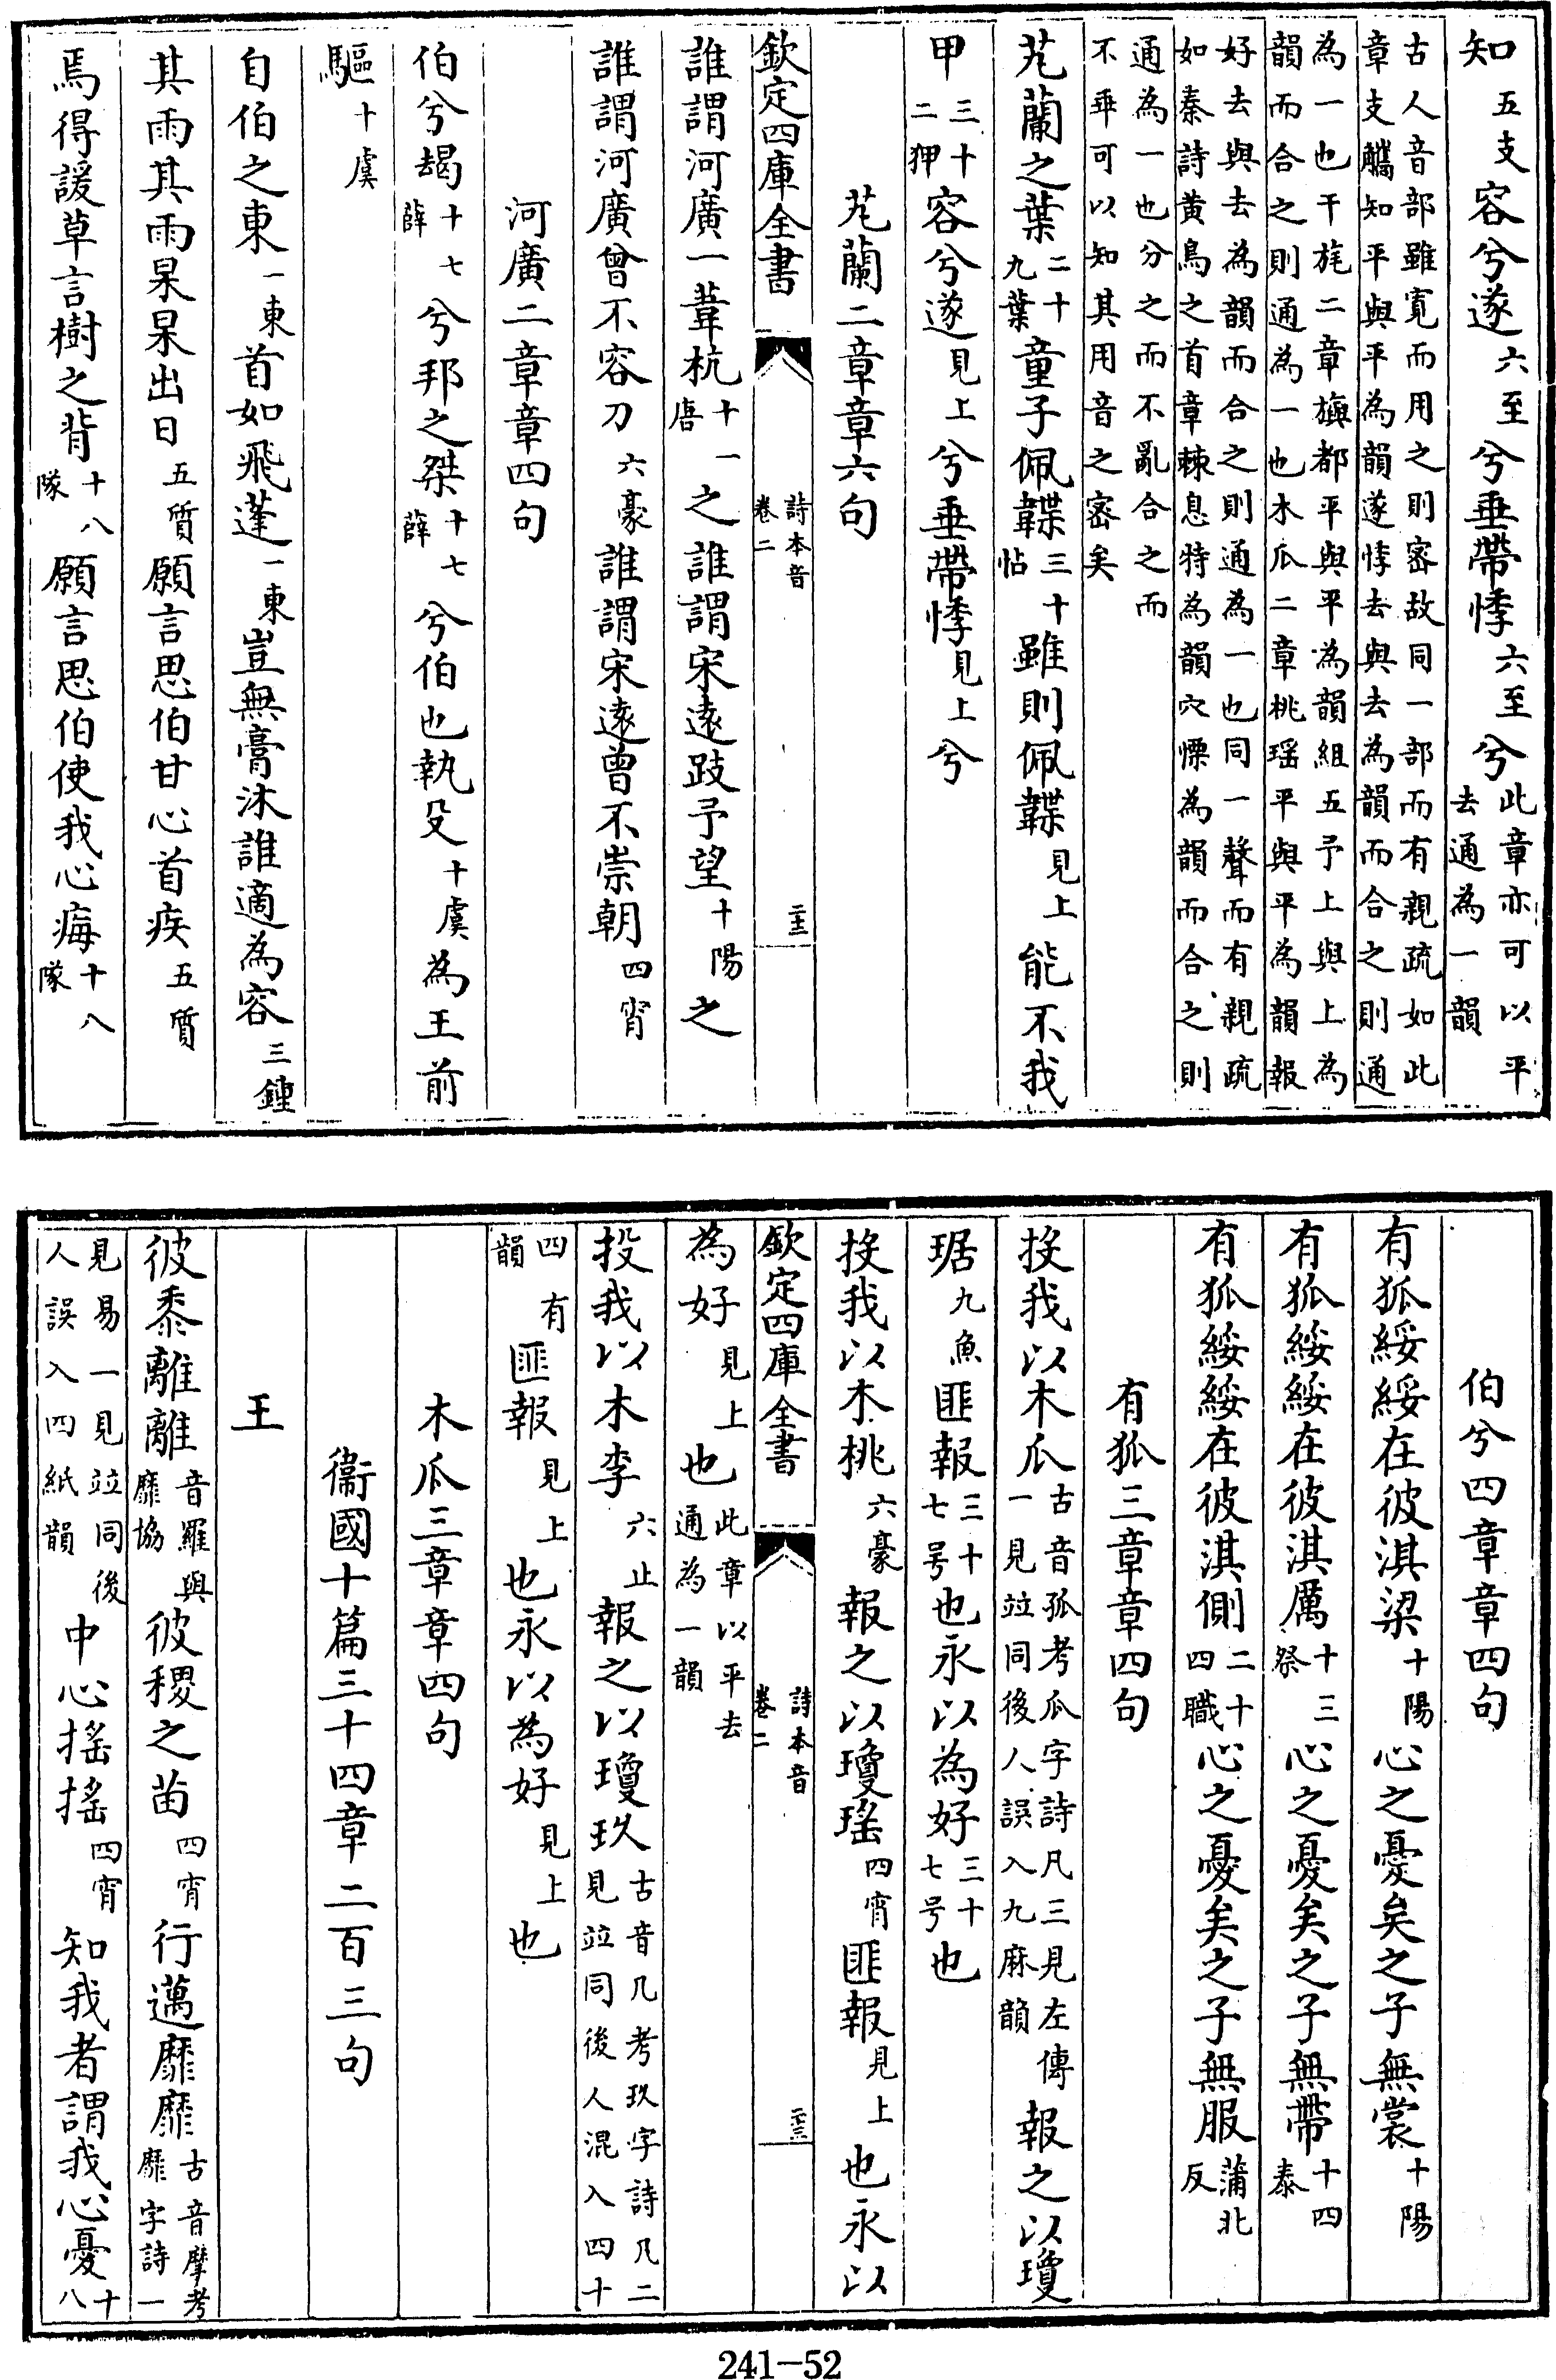 知五支容兮遂六至兮垂帶悸六至兮此章亦可以平去通為一韻
古人音部雖寛而用之則密故同一部而有親疏如此
章支觿知平與平為韻遂悸去與去為韻而合之則通
為一也干旄二章旟都平與平為韻組五予上與上為
韻而合之則通為一也木瓜二章桃瑶平與平為韻報
好去與去為韻而合之則通為一也同一聲而有親疏
如秦詩黄鳥之首章棘息特為韻穴慄為韻而合之則
通為一也分之而不亂合之而
不乖可以知其用音之密矣
芄蘭之葉二十九葉童子佩韘三十帖雖則佩韘見上能不我
甲三十二狎容兮遂見上兮垂帶悸見上兮
芄蘭二章章六句
欽定四庫全書 詩本音 卷二 二十二
誰謂河廣一葦杭十一唐之誰謂宋逺跂予望十陽之
誰謂河廣曾不容刀六豪誰謂宋逺曾不崇朝四宵
河廣二章章四句
伯兮朅十七薛兮邦之桀十七薛兮伯也執殳十虞為王前
驅十虞
自伯之東一東首如飛蓬一東豈無膏沐誰適為容三鍾
其雨其雨杲杲出日五質願言思伯甘心首疾五質
焉得諼草言樹之背十八隊願言思伯使我心痗十八隊
伯兮四章章四句
有狐綏綏在彼淇梁十陽心之憂矣之子無裳十陽
有狐綏綏在彼淇厲十三祭心之憂矣之子無帶十四泰
有狐綏綏在彼淇側二十四職心之憂矣之子無服蒲北反
有狐三章章四句
投我以木瓜古音孤考瓜字詩凡三見左傳一見竝同後人誤入九麻韻報之以瓊
琚九魚匪報三十七号也永以為好三十七号也
投我以木桃六豪報之以瓊瑤四宵匪報見上也永以
欽定四庫全書 詩本音 卷二 二十三
為好見上也此章以平去通為一韻
投我以木李六止報之以瓊玖古音几考玖字詩凡二見竝同後人混入四十
四有韻匪報見上也永以為好見上也
木瓜三章章四句
衞國十篇三十四章二百三句
王
彼黍離離音羅與靡協彼稷之苗四宵行邁靡靡古音摩考靡字詩一
見易一見竝同後人誤入四紙韻中心搖搖四宵知我者謂我心憂十八
241-52